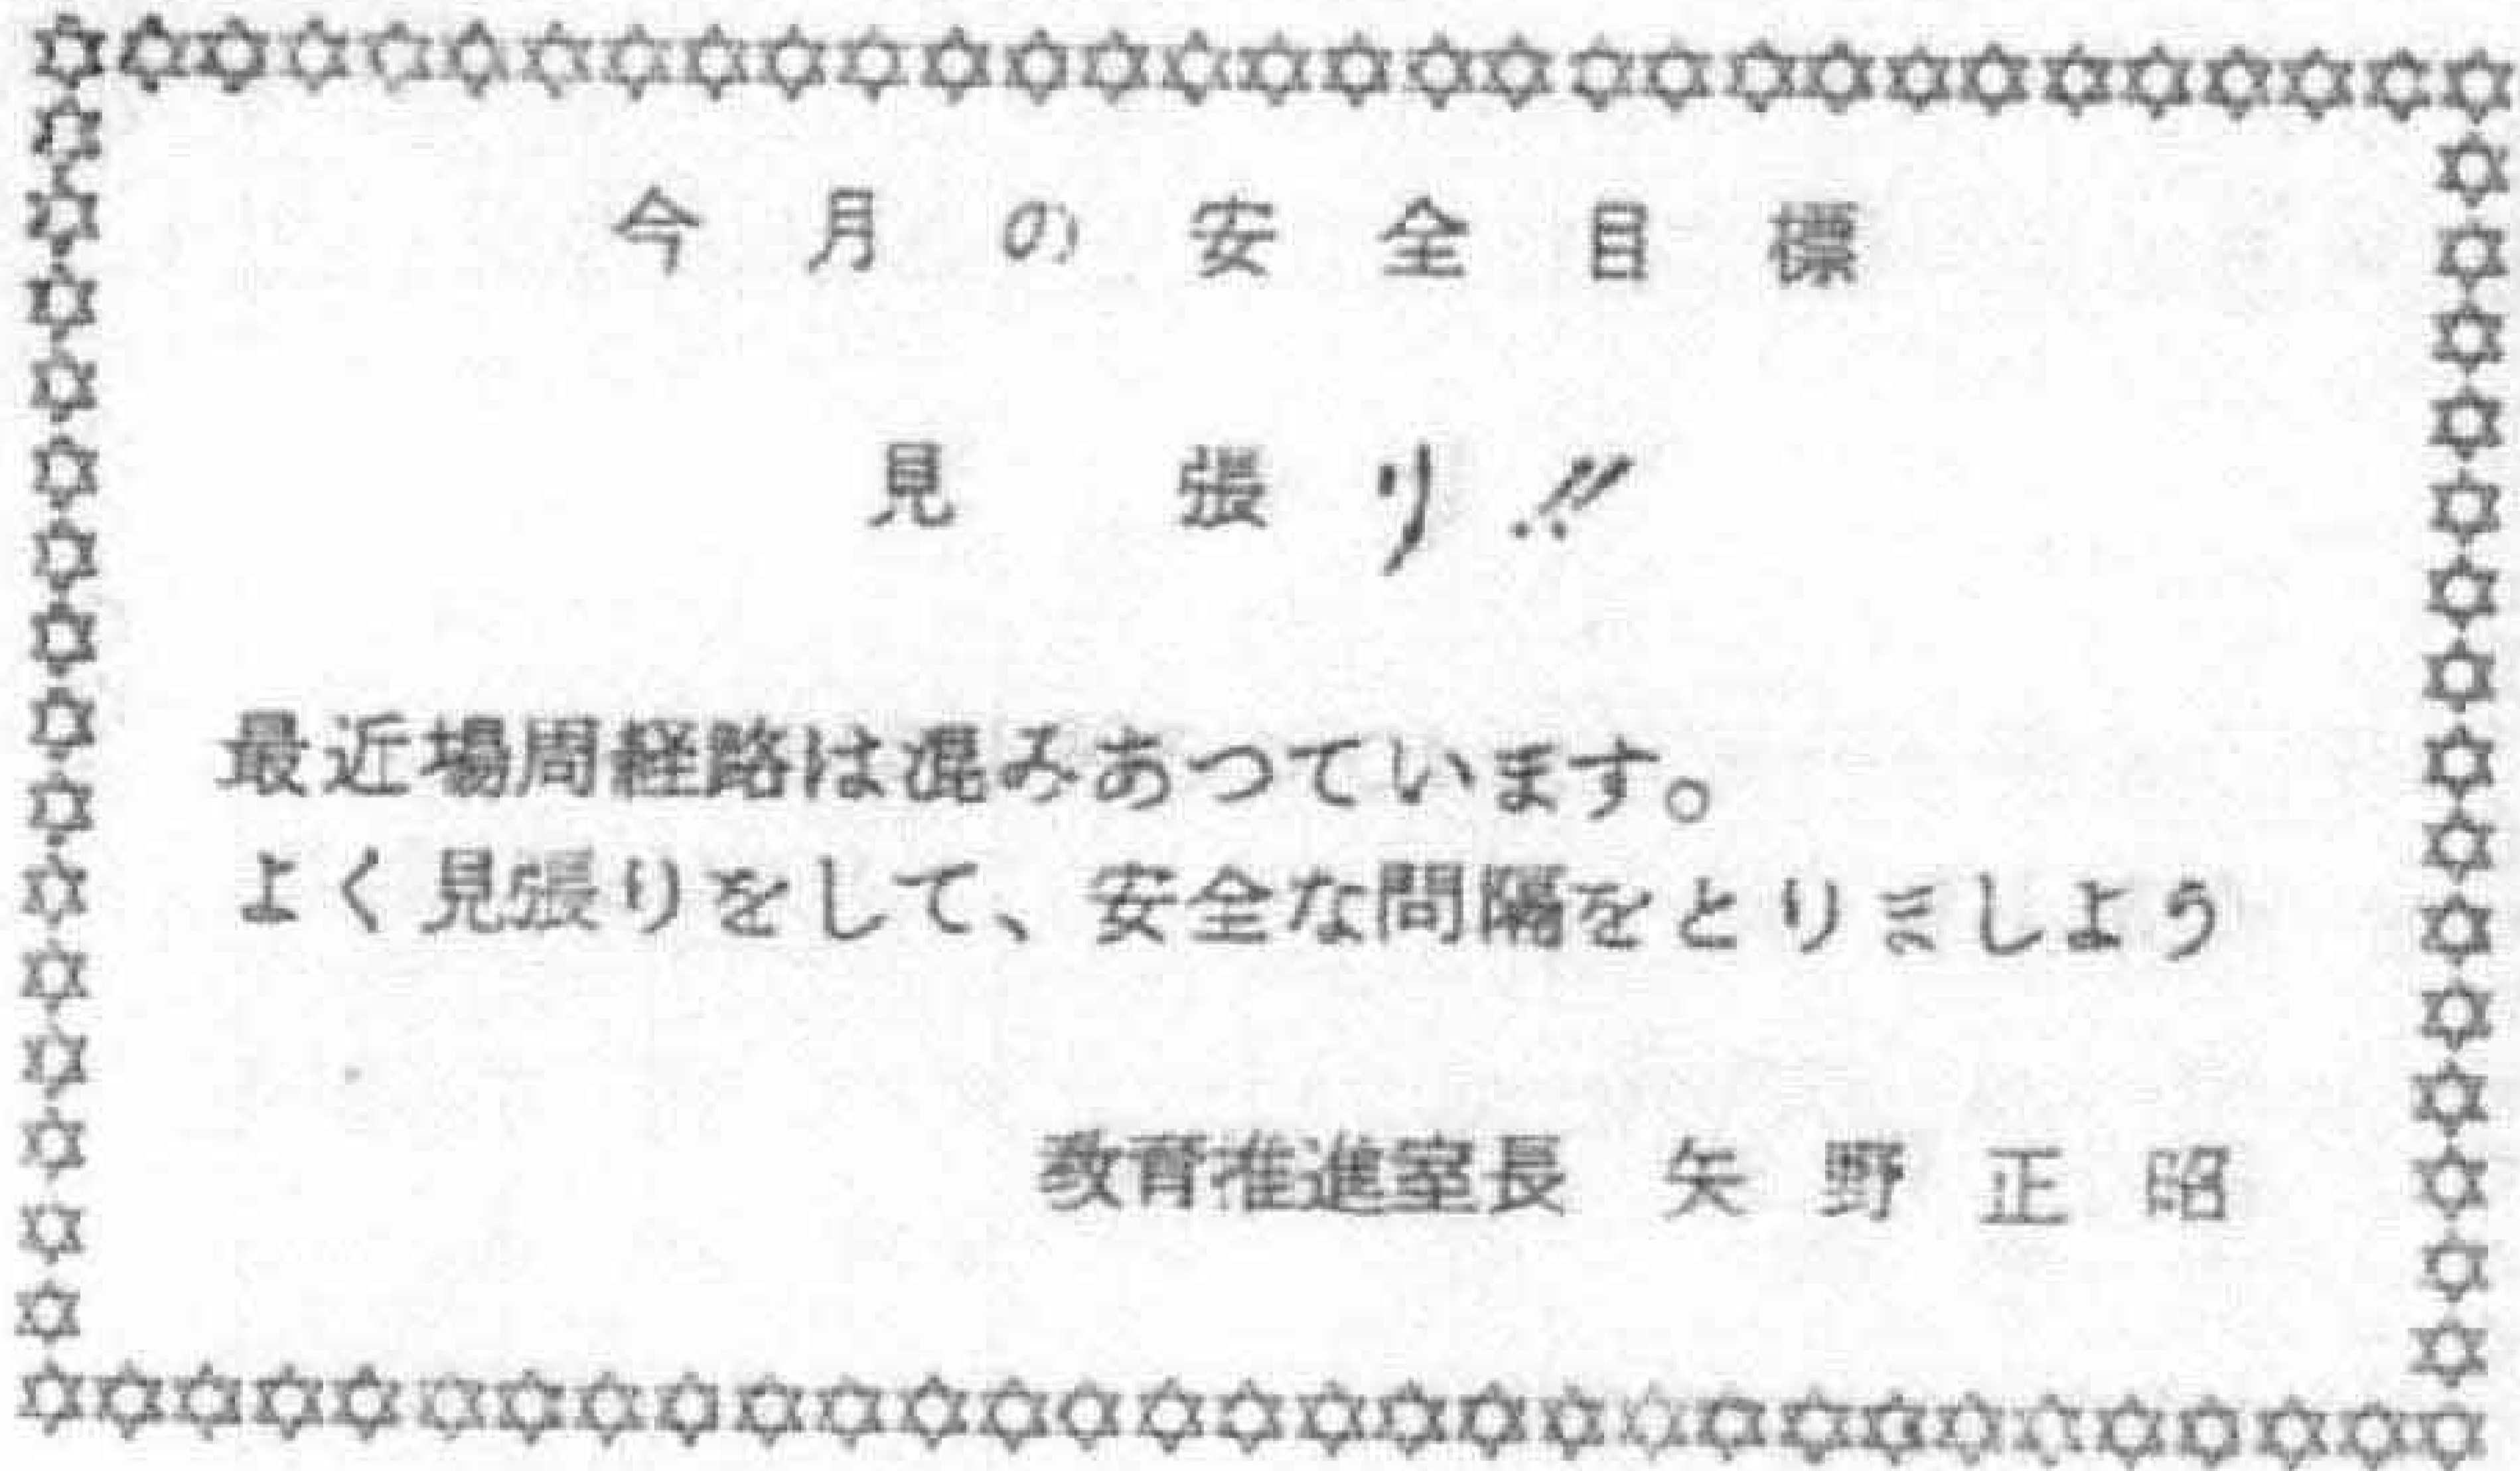 今月の安全目標
見張り!!
最近場周経路は混みあつています。
よく見張りをして、安全な間隔をとりましよう
教育推進室長 矢野正昭